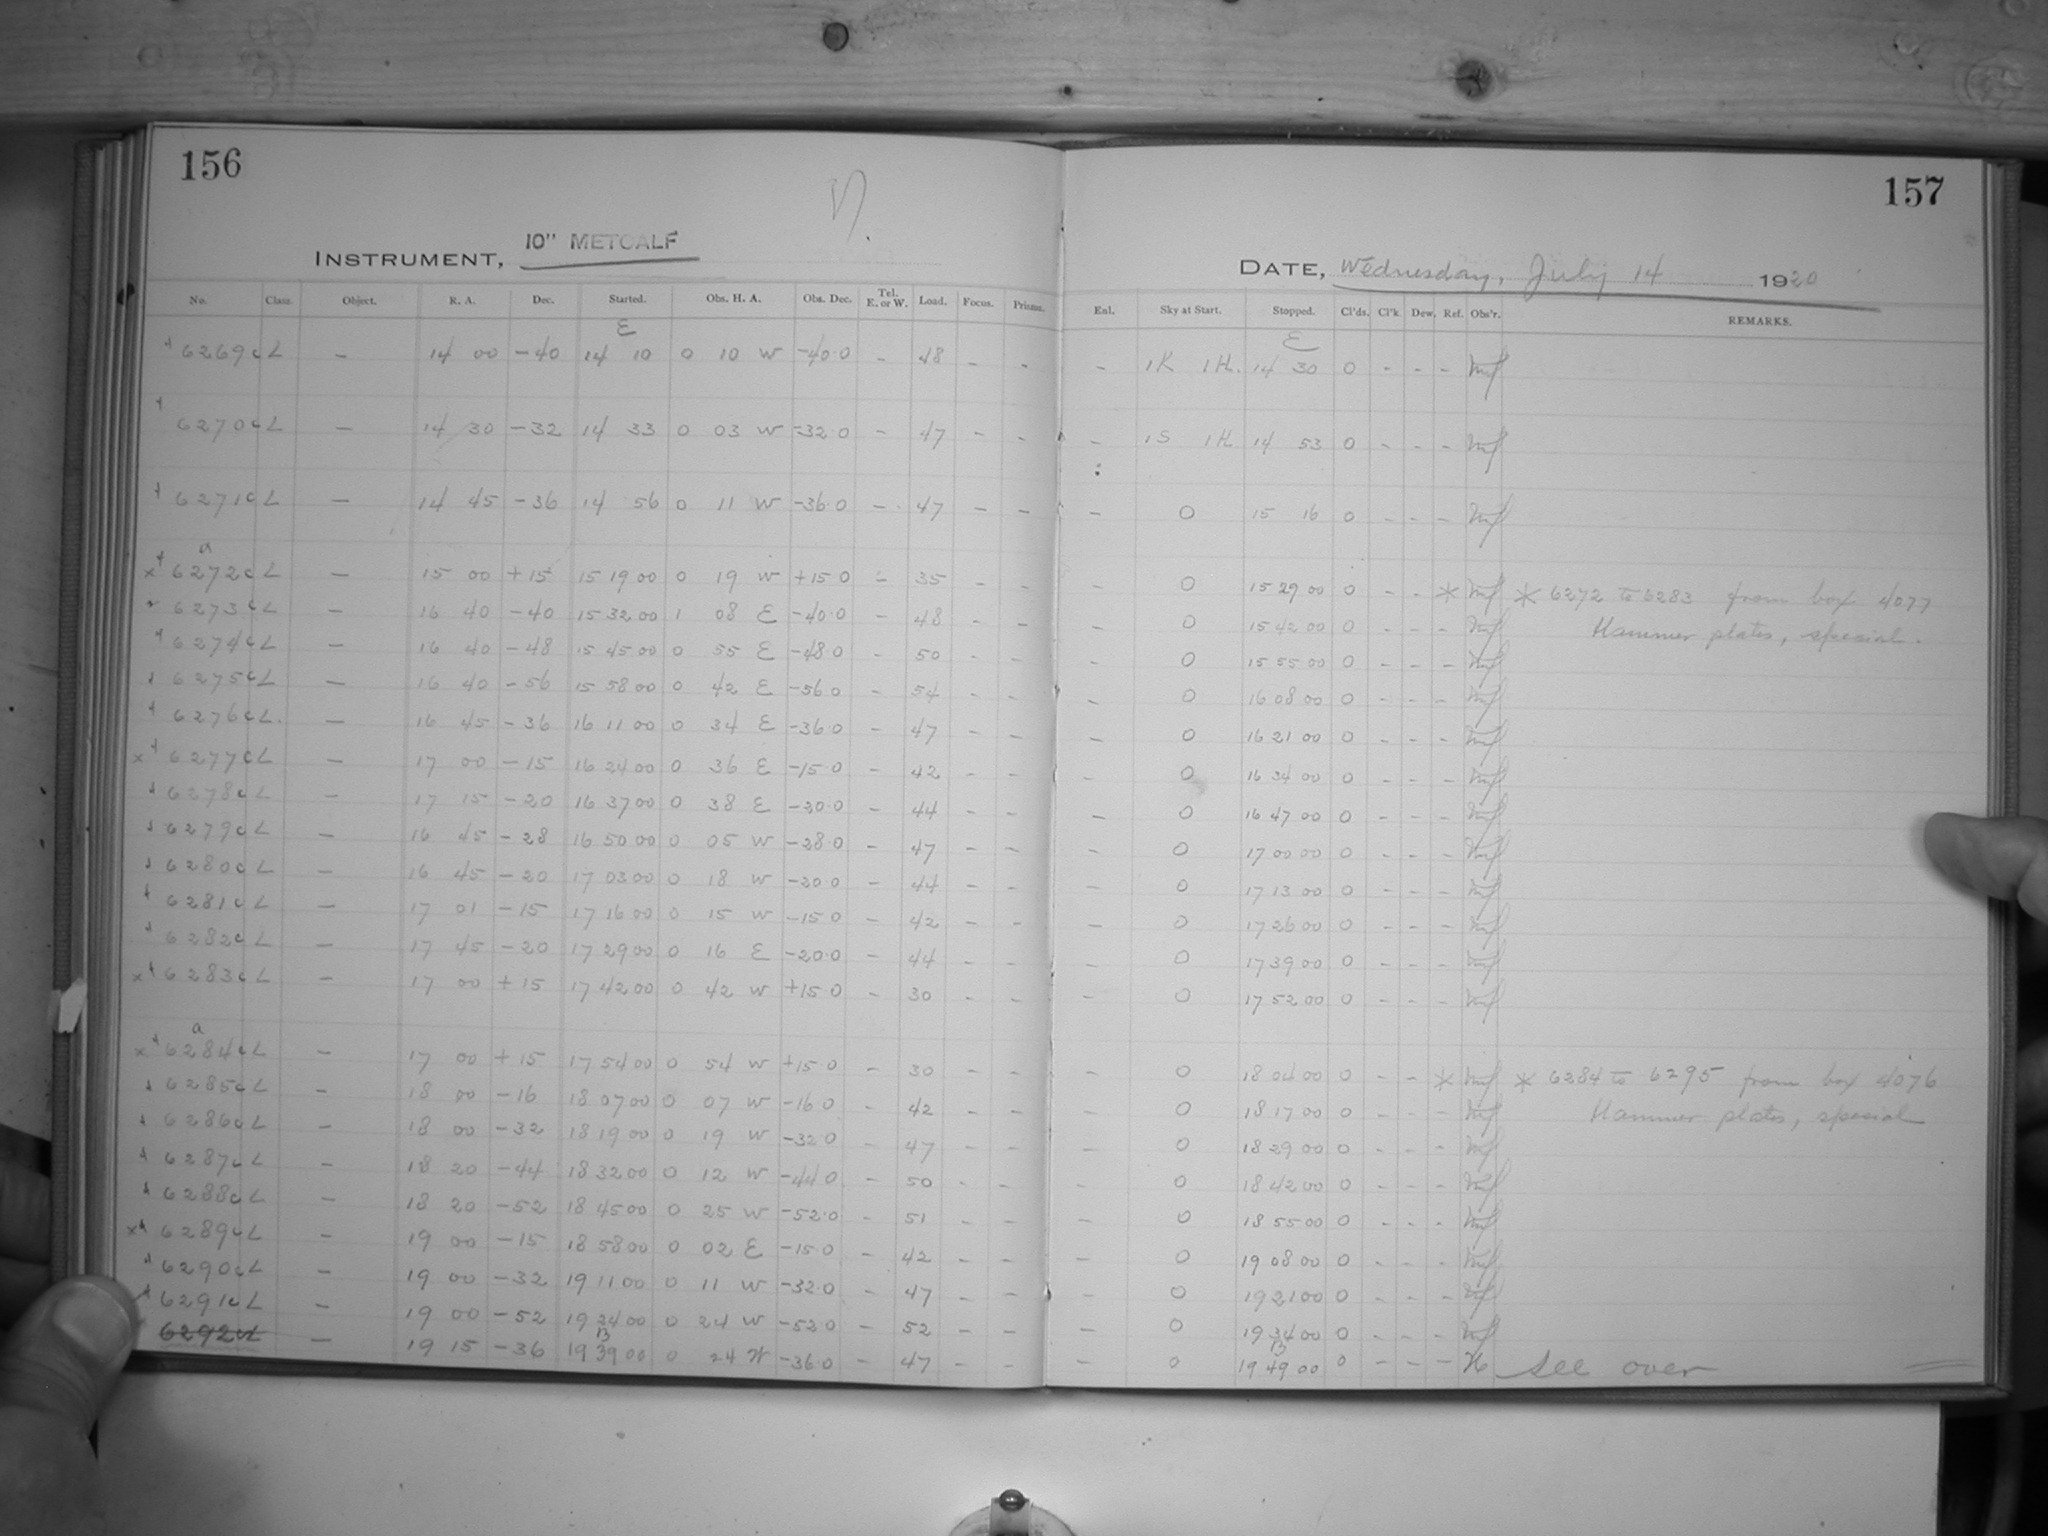 156
157
INSTRUMENT, 10" METCALF
DATE, Wednesday, July 14 1920
No. Class. Object. R. A. Dec. Started. Obs. H. A. Obs. Dec. Tel. E. or W. Load. Focus. Prisms. Enl. Sky at Start. Stopped. Cl'ds. Cl'k. Dew. Ref. Obs'r. REMARKS.
E E
6269c L – 14 00 –40 14 10 0 10 W –40.0 – 48 – – – 1K 1H. 14 30 0 – – –
6270c L – 14 30 –32 14 33 0 03 W –32.0 – 47 – – – 1S 1H 14 53 0 – – –
6271c L – 14 45 –36 14 56 0 11 W –36.0 – 47 – – – 0 15 16 0 – – –
a
x 6272c L – 15 00 +15 15 19 00 0 19 W +15 0 – 35 – – – 0 15 29 00 0 – – * * 6272 to 6283 from box 4077
6273c L – 16 40 –40 15 32 00 1 08 E –40.0 – 48 – – – 0 15 42 00 0 – – – Hammer plates, special.
6274c L – 16 40 –48 15 45 00 0 55 E –48 0 – 50 – – – 0 15 55 00 0 – – –
6275c L – 16 40 –56 15 58 00 0 42 E –56 0 – 54 – – – 0 16 08 00 0 – – –
6276c L. – 16 45 –36 16 11 00 0 34 E –36 0 – 47 – – – 0 16 21 00 0 – – –
x 6277c L – 17 00 –15 16 24 00 0 36 E –15 0 – 42 – – – 0 16 34 00 0 – – –
6278c L – 17 15 –20 16 37 00 0 38 E –20.0 – 44 – – – 0 16 47 00 0 – – –
6279c L – 16 45 –28 16 50 00 0 05 W –28.0 – 47 – – – 0 17 00 00 0 – – –
6280c L – 16 45 –20 17 03 00 0 18 W –20 0 – 44 – – – 0 17 13 00 0 – – –
6281c L – 17 01 –15 17 16 00 0 15 W –15 0 – 42 – – – 0 17 26 00 0 – – –
6282c L – 17 45 –20 17 29 00 0 16 E –20.0 – 44 – – – 0 17 39 00 0 – – –
x 6283c L – 17 00 +15 17 42 00 0 42 W +15 0 – 30 – – – 0 17 52 00 0 – – –
a
x 6284c L – 17 00 +15 17 54 00 0 54 W +15 0 – 30 – – – 0 18 04 00 0 – – * * 6284 to 6295 from box 4076
6285c L – 18 00 –16 18 07 00 0 07 W –16 0 – 42 – – – 0 18 17 00 0 – – – Hammer plates, special
6286c L – 18 00 –32 18 19 00 0 19 W –32 0 – 47 – – – 0 18 29 00 0 – – –
6287c L – 18 20 –44 18 32 00 0 12 W –44 0 – 50 – – – 0 18 42 00 0 – – –
6288c L – 18 20 –52 18 45 00 0 25 W –52.0 – 51 – – – 0 18 55 00 0 – – –
x 6289c L – 19 00 –15 18 58 00 0 02 E –15 0 – 42 – – – 0 19 08 00 0 – – –
6290c L – 19 00 –32 19 11 00 0 11 W –32.0 – 47 – – – 0 19 21 00 0 – – –
6291c L – 19 00 –52 19 24 00 0 24 W –52 0 – 52 – – – 0 19 34 00 0 – – –
6292cL – 19 15 –36 19 39 00 0 24 W –36.0 – 47 – – – 0 19 49 00 0 – – – H see over